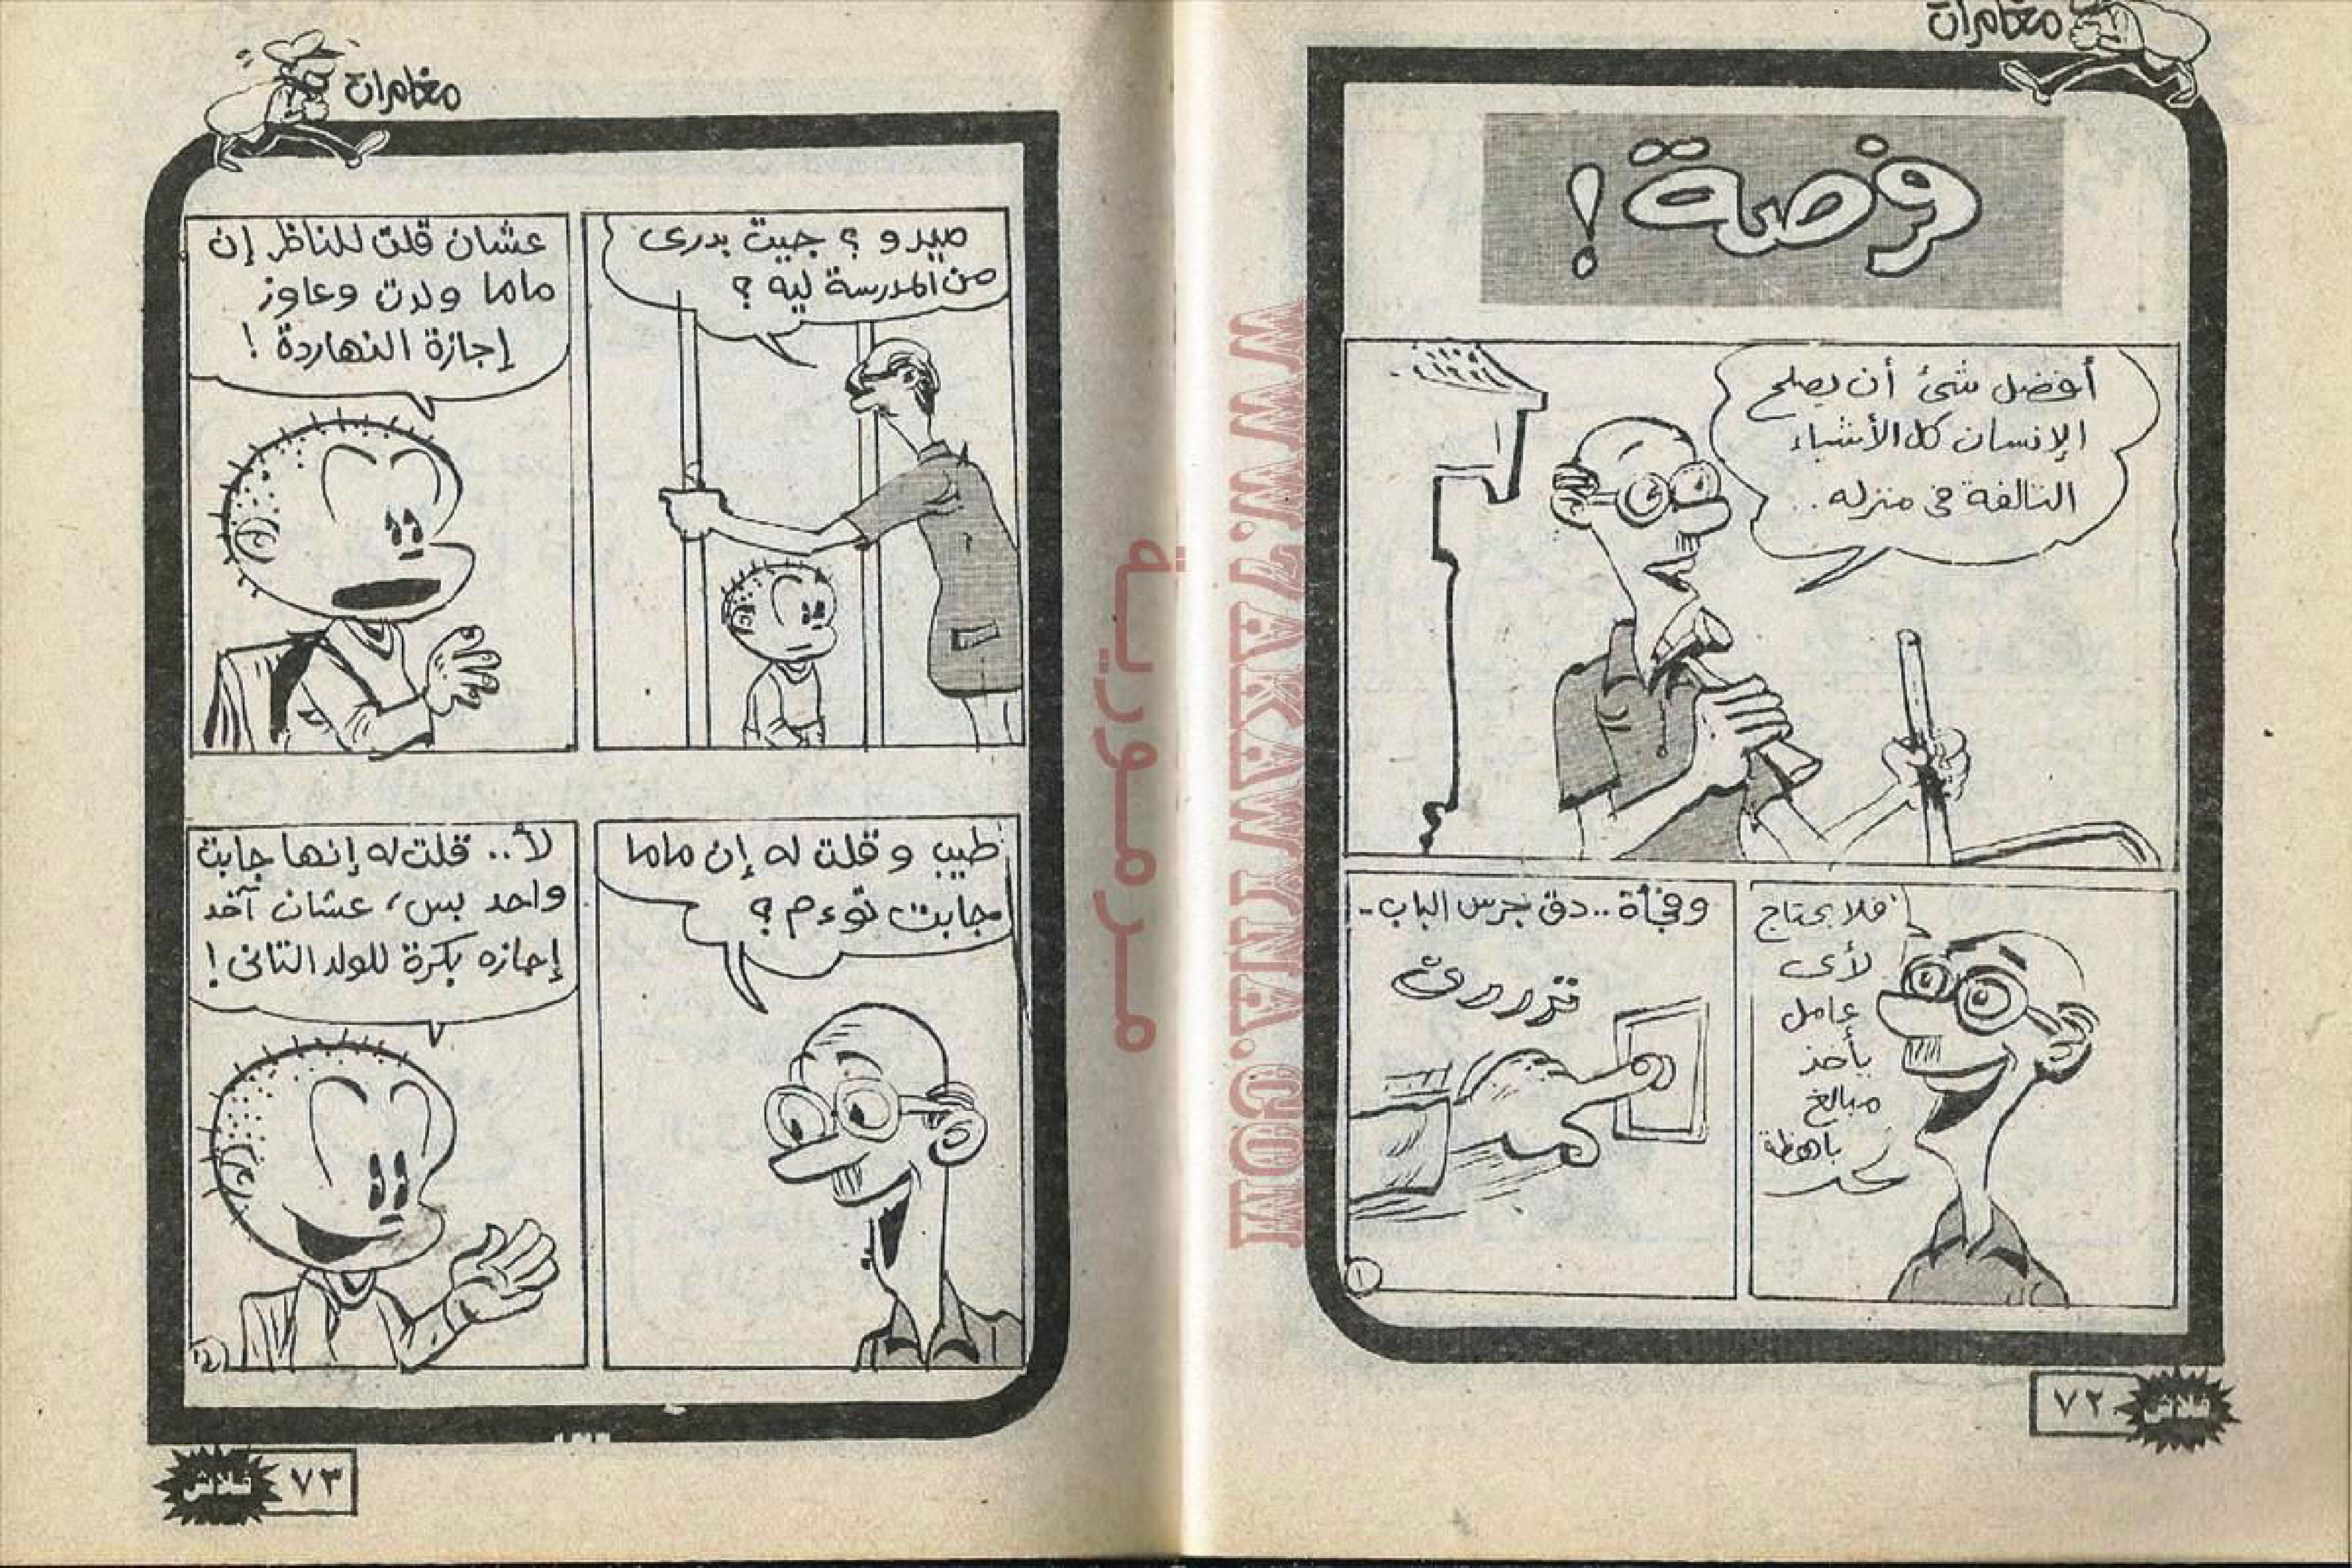 مغامرات
فرصة !
أفضل شئ أن يصلح
الإنسان كل الأشياء
التالفة فى منزله ..
فلا يحتاج
لأى
عامل
يأخذ
مبالغ
باهظة
وفجأة .. دق جرس الباب ..
تررررن
١
٧٢
فلاش
مغامرات
ميدو ؟ جيت بدرى
من المدرسة ليه ؟
عشان قلت للناظر إن
ماما ولدت وعاوز
إجازة النهاردة !
طيب و قلت له إن ماما
جابت توءم ؟
لأ .. قلت له إنها جابت
واحد بس، عشان آخد
إجازه بكرة للولد التانى !
٧٣
فلاش
WWW.7AKAWINA.COM